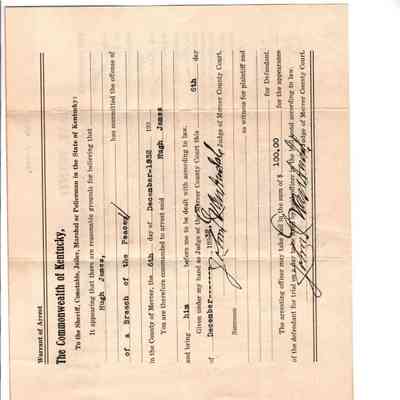 Warrant of Arrest
The Commonwealth of Kentucky,
To the Sheriff, Constable, Jailer, Marshal or Policeman in the State of Kentucky:
It appearing that there are reasonable grounds for believing that
Hugh James,
has committed the offense of
of a Breach of the Peace
in the County of Mercer, the 6th day of December-1932 193
You are therefore commanded to arrest said Hugh James
and bring him before me to be dealt with according to law.
Given under my hand as Judge of the Mercer County Court this 6th day
of December 1932
Judge of Mercer County Court.
Summons
as witness for plaintiff and
for Defendant.
The arresting officer may take bail in the sum of $ 100.00 for the appearance
of the defendant for trial on a day bond according to law.
Judge of Mercer County Court.